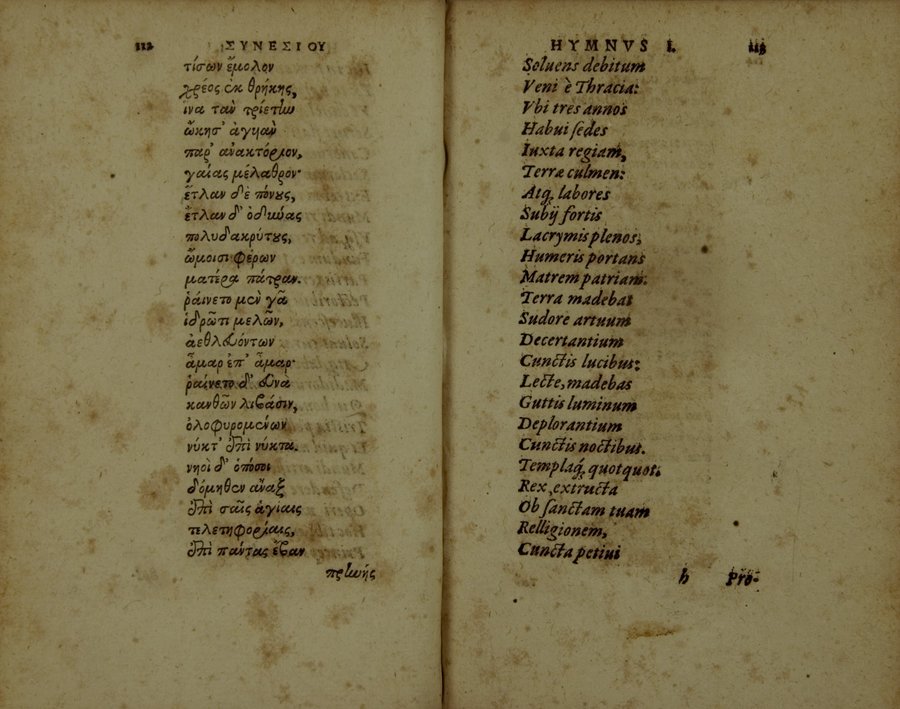 112 ΣΥΝΕΣΙΟΥ
τίσων ἔμολον
χρέος ἐκ θρήκης,
ἵνα ταν τρίετιν
ὤκησ' ἀγυιὰν
παρ' ἀνακτόριον,
γαίας μέλαθρον·
ἔτλαν δὲ πόνους,
ἔτλαν δ' ὀδύνας
πολυδακρύτους,
ὤμοισι φέρων
ματέρα πάτραν.
ῥαίνετο μὲν γᾶ
ἱδρῶτι μελῶν,
ἀεθλευόντων
ἆμαρ ἐπ' ἆμαρ·
ῥαίνετο δ' εὐνα
κανθῶν λιβάσιν,
ὀλοφυρομένων
νύκτ' ἐπὶ νύκτα.
νηοὶ δ' ὁπόσοι
δόμηθεν ἄναξ
ἐπὶ σαῖς ἁγίαις
τελετηφορίαις,
ἐπὶ πάντας ἔβαν
πρωνής
HYMNVS I. 113
Soluens debitum
Veni è Thracia:
Vbi tres annos
Habui sedes
Iuxta regiam,
Terræ culmen:
Atq; labores
Subij fortis
Lacrymis plenos,
Humeris portans
Matrem patriam.
Terra madebat
Sudore artuum
Decertantium
Cunctis lucibus:
Lecte, madebas
Guttis luminum
Deplorantium
Cunctis noctibus.
Templaq; quotquot.
Rex, extructa
Ob sanctam tuam
Relligionem,
Cuncta petiui
h Pro-